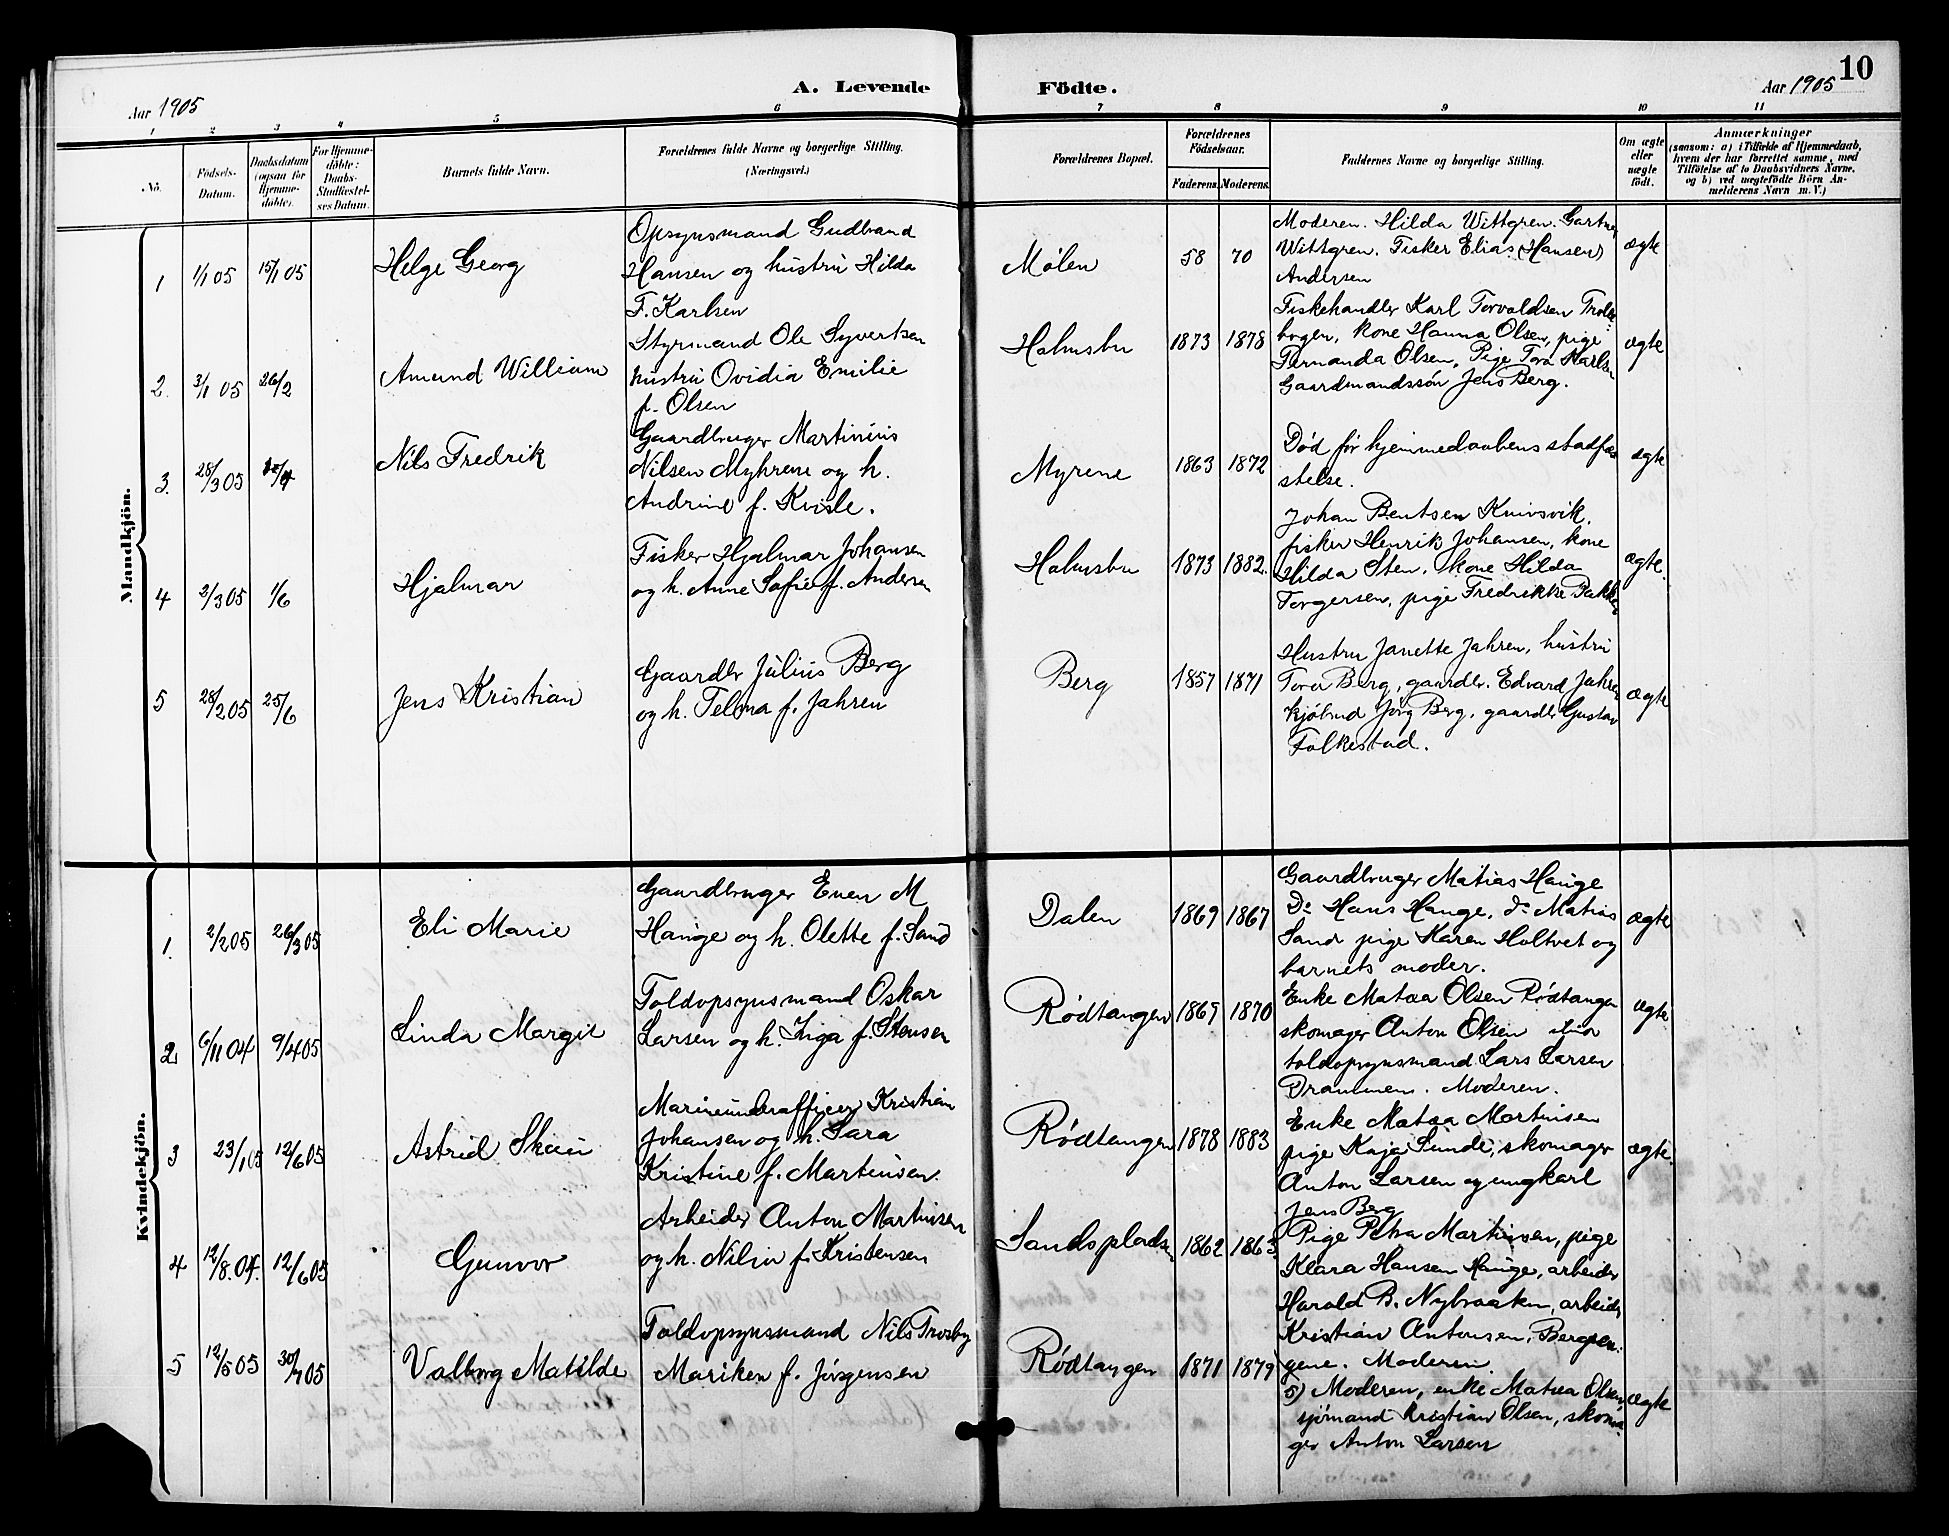 A. Levende Födte.
10
Aar 1905
Aar 1905
1 2 3 4 5 6 7 8 9 10 11
No.
Födsels-Datum.
Daabsdatum (ogsaa for Hjemme-döbte).
For Hjemme-döbte: Daabs-Stadfæstel-ses Datum.
Barnets fulde Navn.
Forældrenes fulde Navne og borgerlige Stilling. (Næringsvei.)
Forældrenes Bopæl.
Forældrenes Födselsaar.
Faderens. Moderens.
Faddernes Navne og borgerlige Stilling.
Om ægte eller uægte födt.
Anmærkninger
(saasom: a) i Tilfælde af Hjemmedaab,
hvem der har forrettet samme, med
Tilföielse af to Daabsvidners Navne,
og b) ved uægtefödte Börn An-
melderens Navn m. V.)
Mandkjön.
1 1/1 05 15/1 05
Helge Georg
Opsynsmand Gudbrand
Hansen og hustru Hilda
F. Karlsen
Mølen
58 70
Moderen. Hilda Wittgren. Gartner
Wittgren. Fisker Elias (Hansen)
Andersen
ægte
2. 3/1 05 26/2
Amund William
Styrmand Ole Syvertsen
hustru Ovidia Emilie
f. Olsen
Holmsbu
1873 1878
Fiskehandler Karl Torvaldsen
kone Hanna Olsen, pige
Fernanda Olsen, Pige Tora Karlsen
Gaardmandssøn Jens Berg.
ægte
3. 28/3 05
Nils Fredrik
Gaardbruger Martinius
Nilsen Myhrene og h.
Andrine f. Kvisle.
Myrene
1863 1872
Død før hjemmedaabens stadfæ
stelse.
ægte
4 2/3 05 1/6
Hjalmar
Fisker Hjalmar Johansen
og h. Anne Sofie f. Andersen
Holmsbu
1873 1882.
Johan Bentsen Knivsvik.
fisker Henrik Johansen, kone
Hilda Sten, kone Hilda
Torgersen, pige Fredrikke
ægte.
5 28/2 05 25/6
Jens Kristian
Gaardbr Julius Berg
og h. Telma f. Jahren
Berg
1857 1871
Hustru Janette Jahren, hustru
Tora Berg, gaardbr. Edvard Jahren
Jörg Berg, gaardbr Gustav
Folkestad.
ægte
Kvindekjön.
1. 2/2 05 26/3 05
Eli Marie
Gaardbruger Even M
Hauge og h. Olette f. Sand
Dalen
1869 1867
Gaardbruger Matias Hauge
Do Hans Hauge, do Matias
Sand pige Karen Holtvet og
barnets moder.
ægte
2 6/11 04 9/4 05
Linda Margit
Toldopsynsmand Oskar
Larsen og h. Inga f. Stensen
Rødtangen
1869 1870
Enke Matea Olsen Rødtangen
skomager Anton Olsen
toldopsynsmand Lars Larsen
Drammen. Moderen.
ægte
3 23/1 05 12/6 05
Astrid Skau
Marineunderofficer Kristian
Johansen og h. Sara
Kristine f. Martinsen.
Rødtangen
1878 1883
Enke Matea Martinsen
pige Kaja Sunde, skomager
Anton Larsen og ungkarl
Jens Berg
ægte.
4 12/8.04. 12/6 05
Gunvor
Arbeider Anton Martinsen
og h. Nilsia f. Kristensen
Sandspladsen
1862 1863
Pige Petra Martinsen, pige
Klara Hansen Hauge, arbeider
Harald B. Nybraaten, arbeider
Kristian Antonsen, Bergsen-
gene. Moderen.
5 12/5 05 30/7 05
Valborg Matilde
Toldopsynsmand Nils Trosby
Mariken f. Jörgensen
Rødtangen
1871 1879
5) Moderen, enke Matea Olsen,
sjömand Kristian Olsen, skoma
ger Anton Larsen
ægte